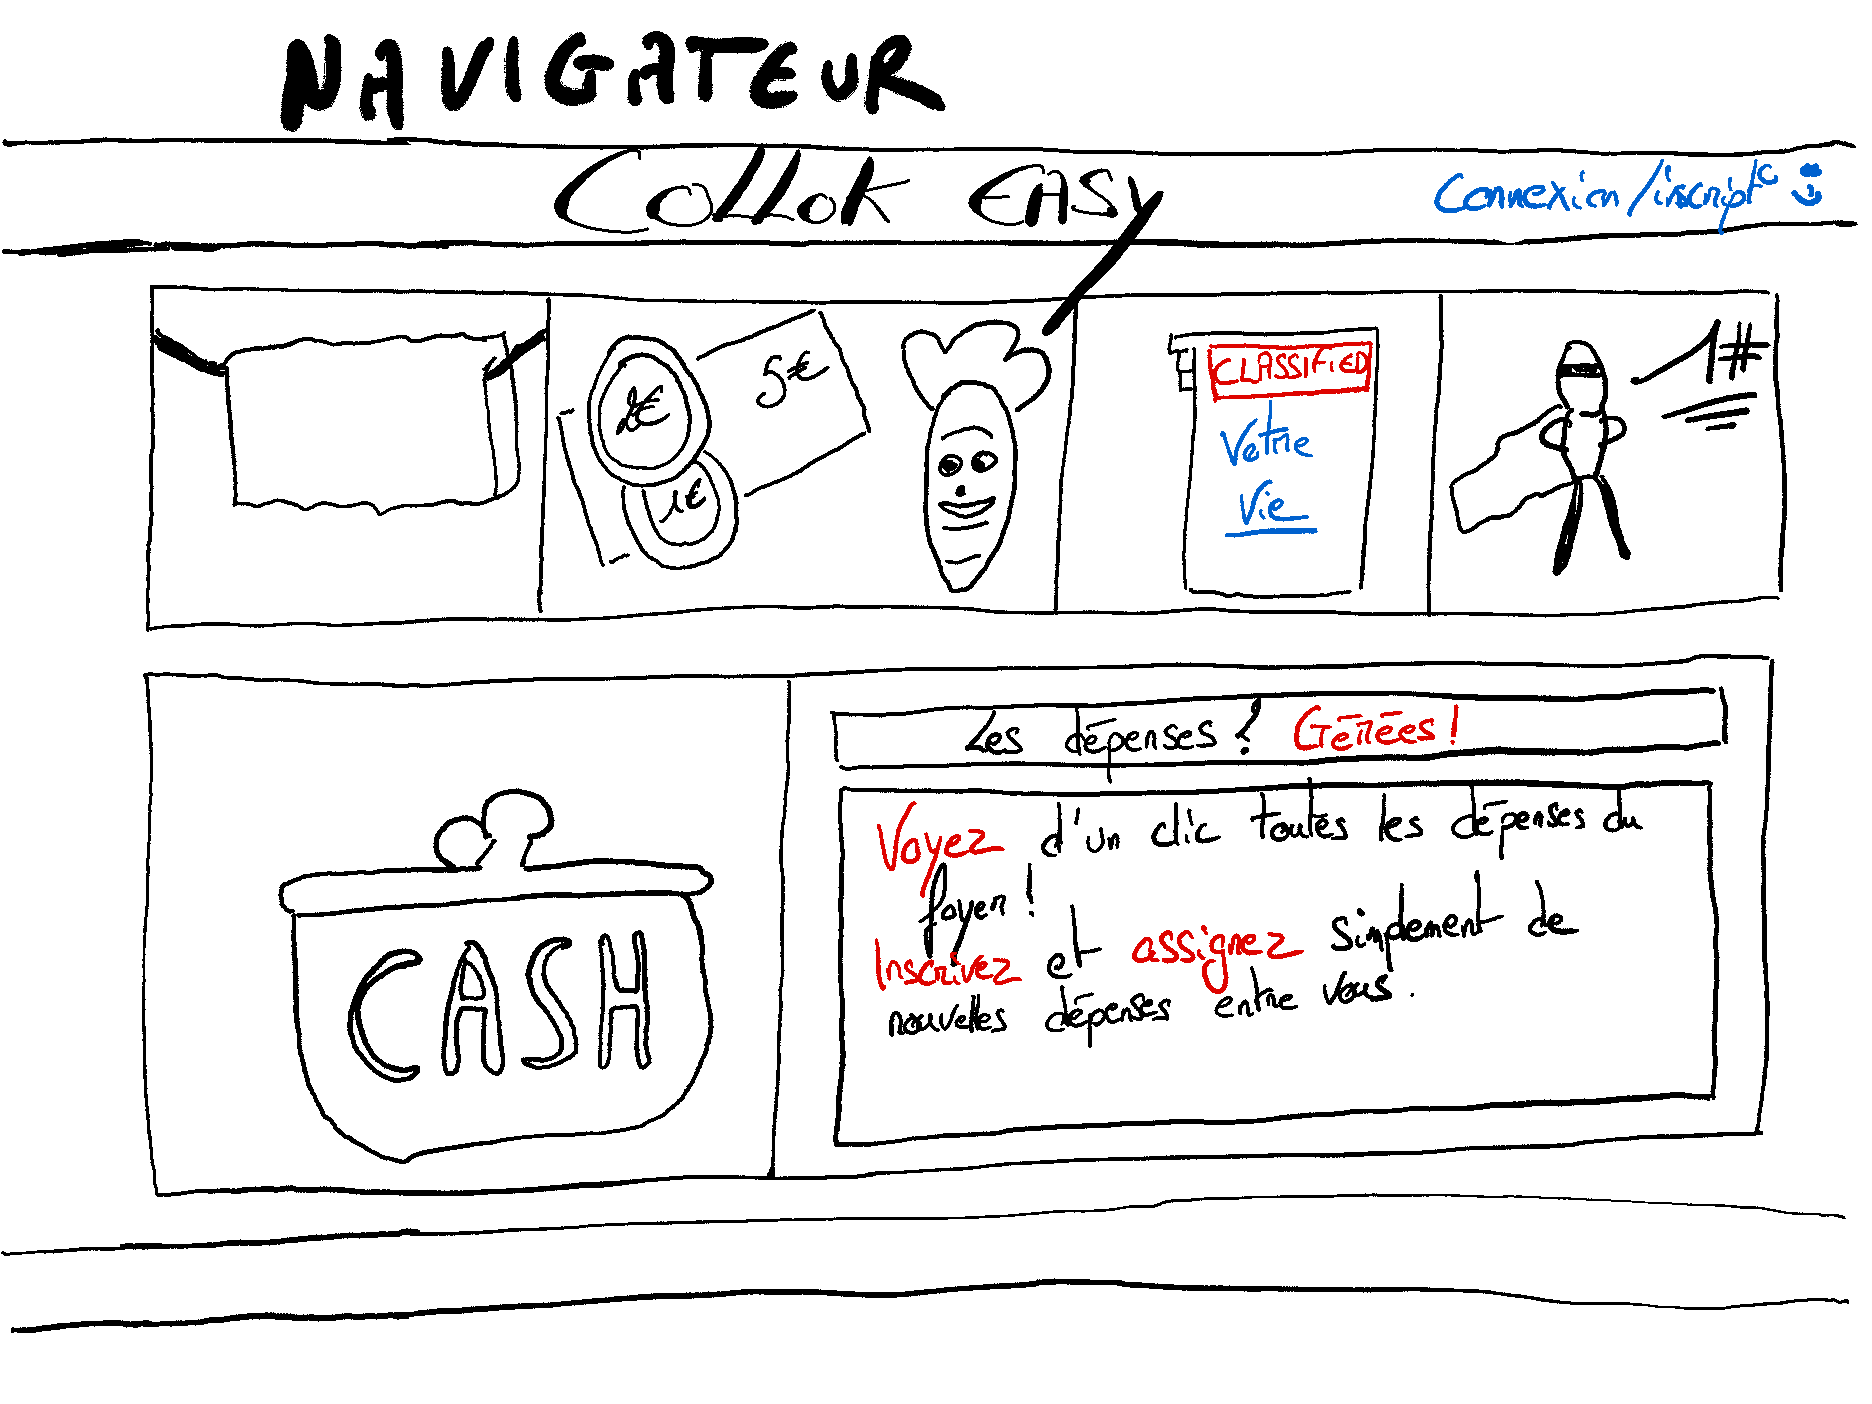 NAVIGATEUR
Collok EASY
Connexion/inscript°
2€
5€
1€
CLASSIFIED
Votre
Vie
1#
Les dépenses ? Gérées !
Voyez d'un clic toutes les dépenses du
foyer !
Inscrivez et assignez simplement de
nouvelles dépenses entre vous.
CASH